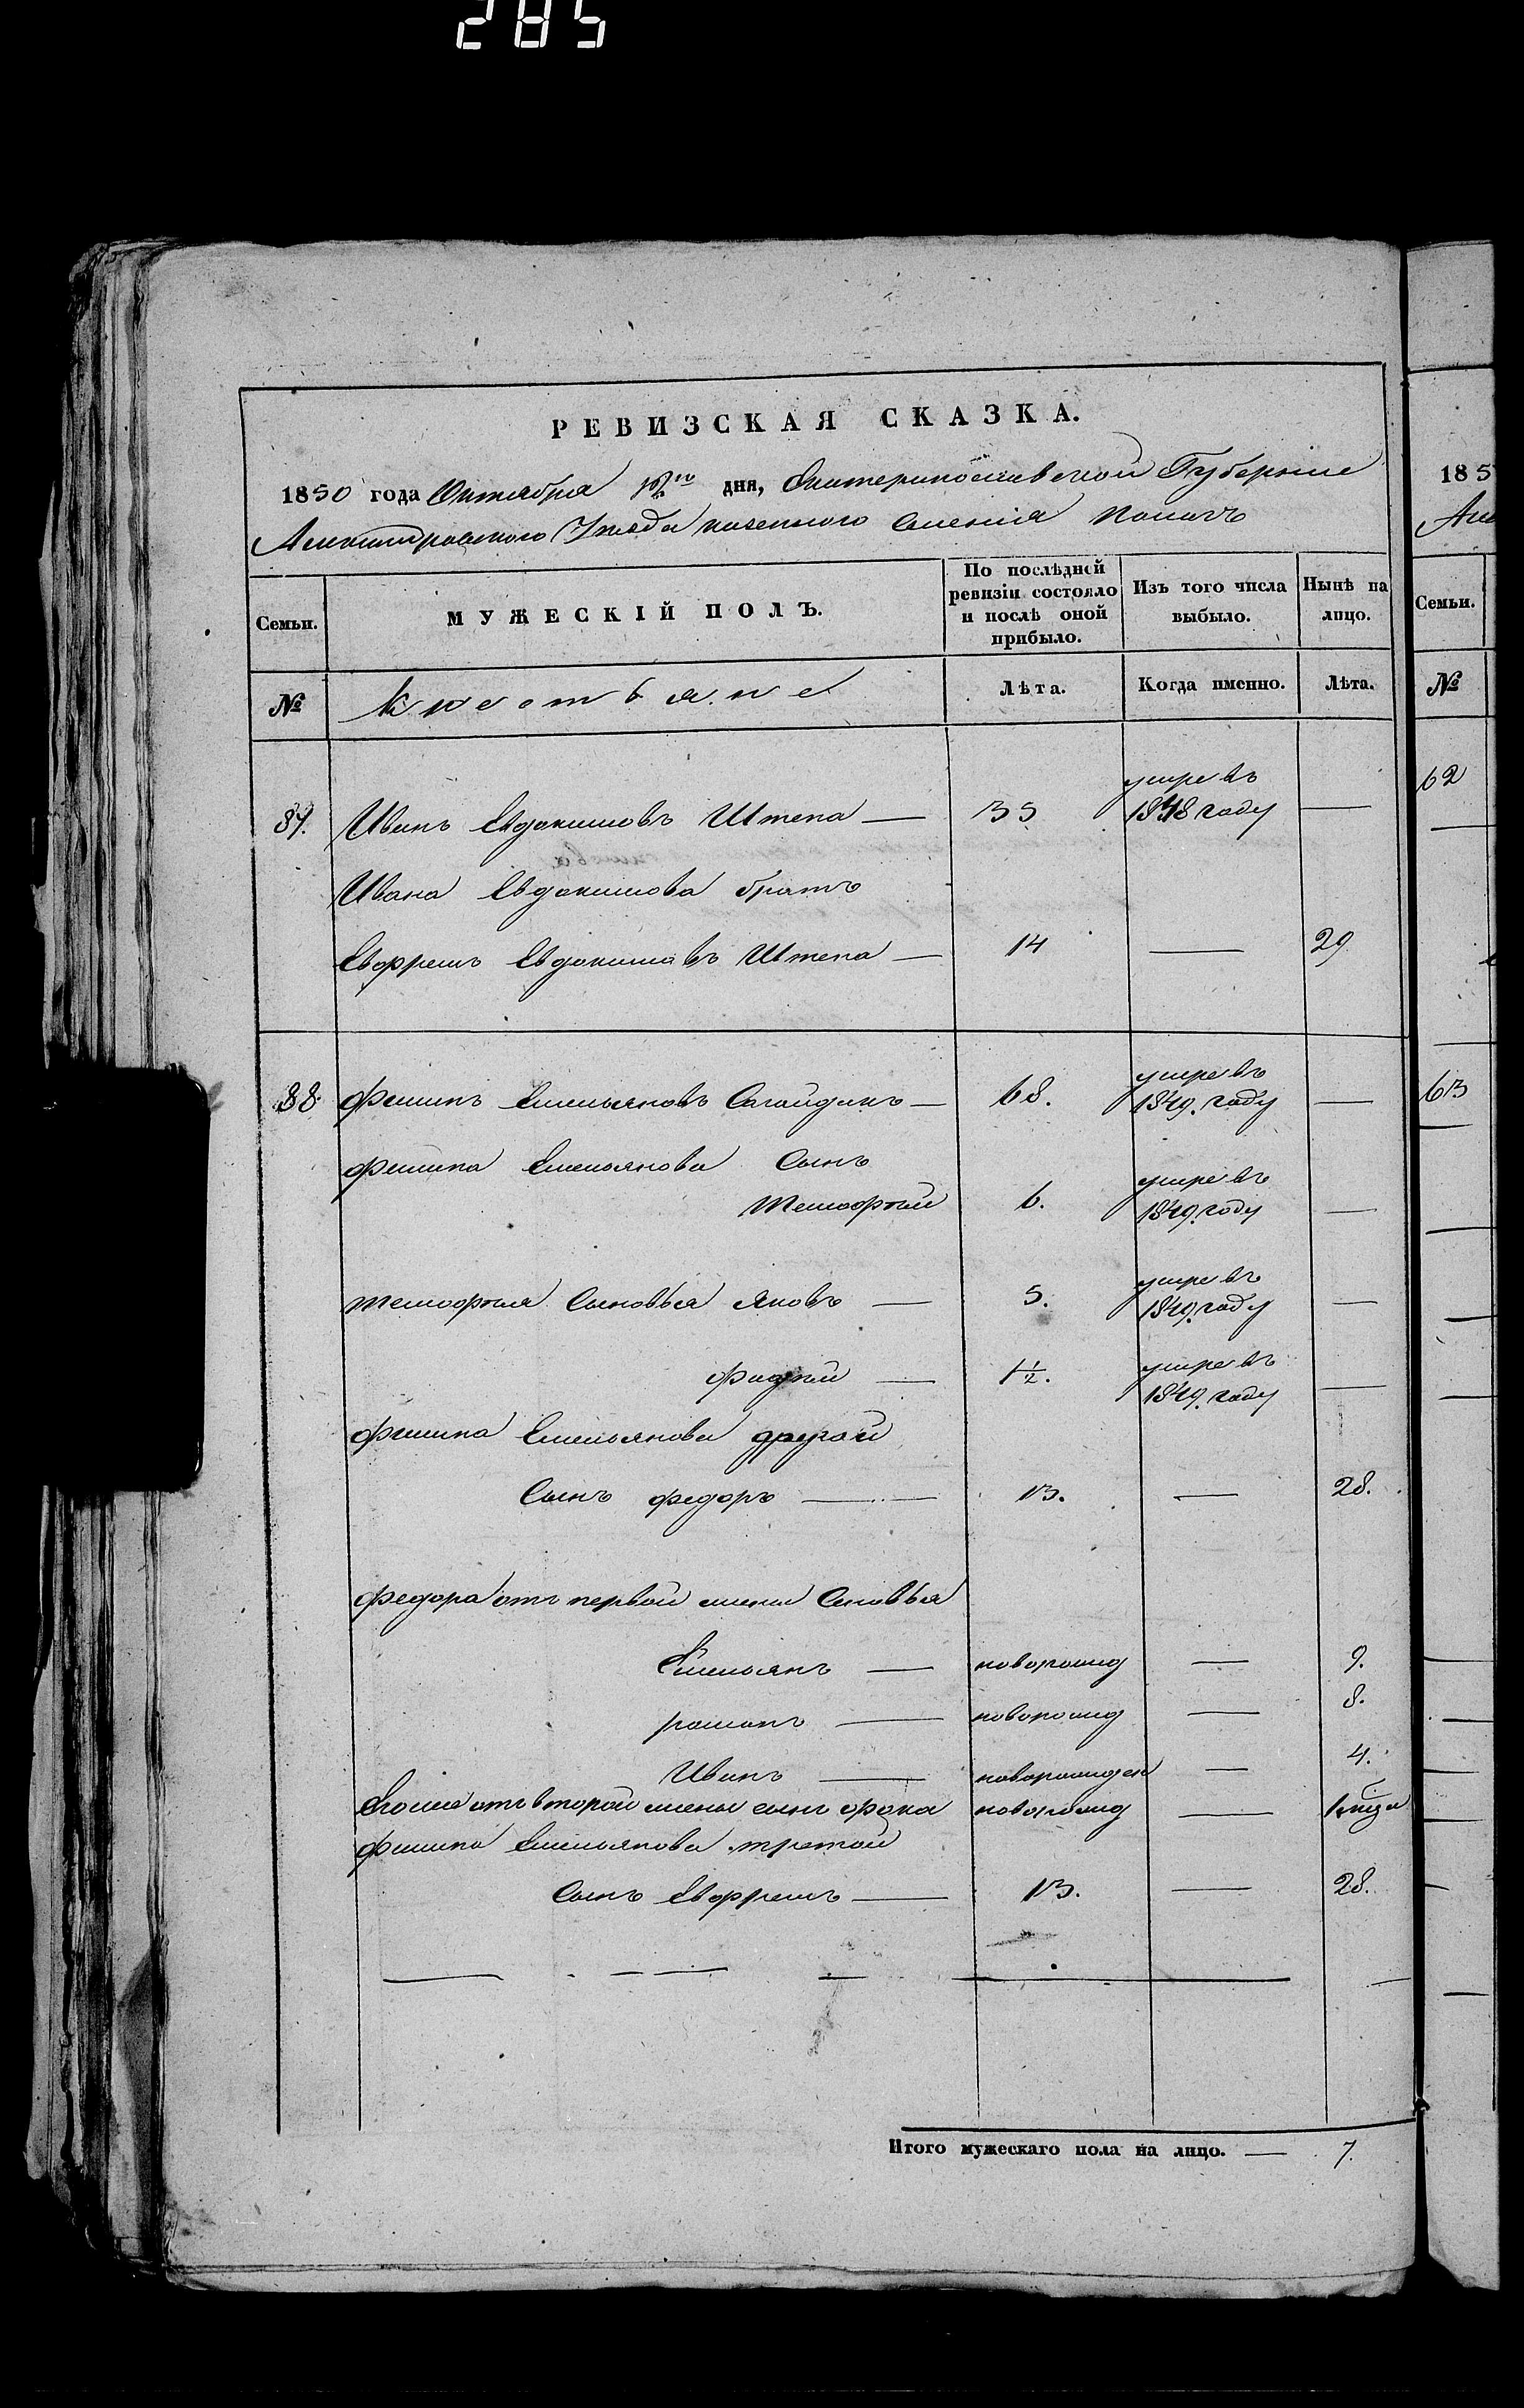 285
РЕВИЗСКАЯ СКАЗКА.
1850 года Октября дня, Екатеринославской Губерніи
Александровского Уѣзда казенного Селенія
Семьи. МУЖЕСКІЙ ПОЛЪ. По послѣдней ревизіи состояло и послѣ оной прибыло. Изъ того числа выбыло. Нынѣ на лицо.
№ Крестьяне Лѣта. Когда именно. Лѣта.
87. Иванъ Евдокимовъ Штепа — 35 умре въ 1848 году —
Ивана Евдокимова братъ
Евфремъ Евдокимовъ Штепа — 14 — 29
88 Филипъ Емельяновъ Сагайдакъ — 68. умре въ 1849. году —
Филипа Емельянова Сынъ
Тимофѣй 6. умре въ 1849. году —
Тимофѣя Сыновья Яковъ — 5. умре въ 1849. году —
Фадѣй — 1½. умре въ 1849. году —
Филипа Емельянова другой
Сынъ Федоръ — 13. — 28.
Федора отъ первой жены Сыновья
Емельянъ — новорожд — 9.
романъ — новорожд — 8.
Иванъ — новорожден — 4.
Егоже отъ второй жены сынъ фока новорожд —
Филипа Емельянова третой
Сынъ Евфремъ — 13. — 28.
Итого мужескаго пола на лицо. — 7.
185
Але
Семьи.
№
62
63